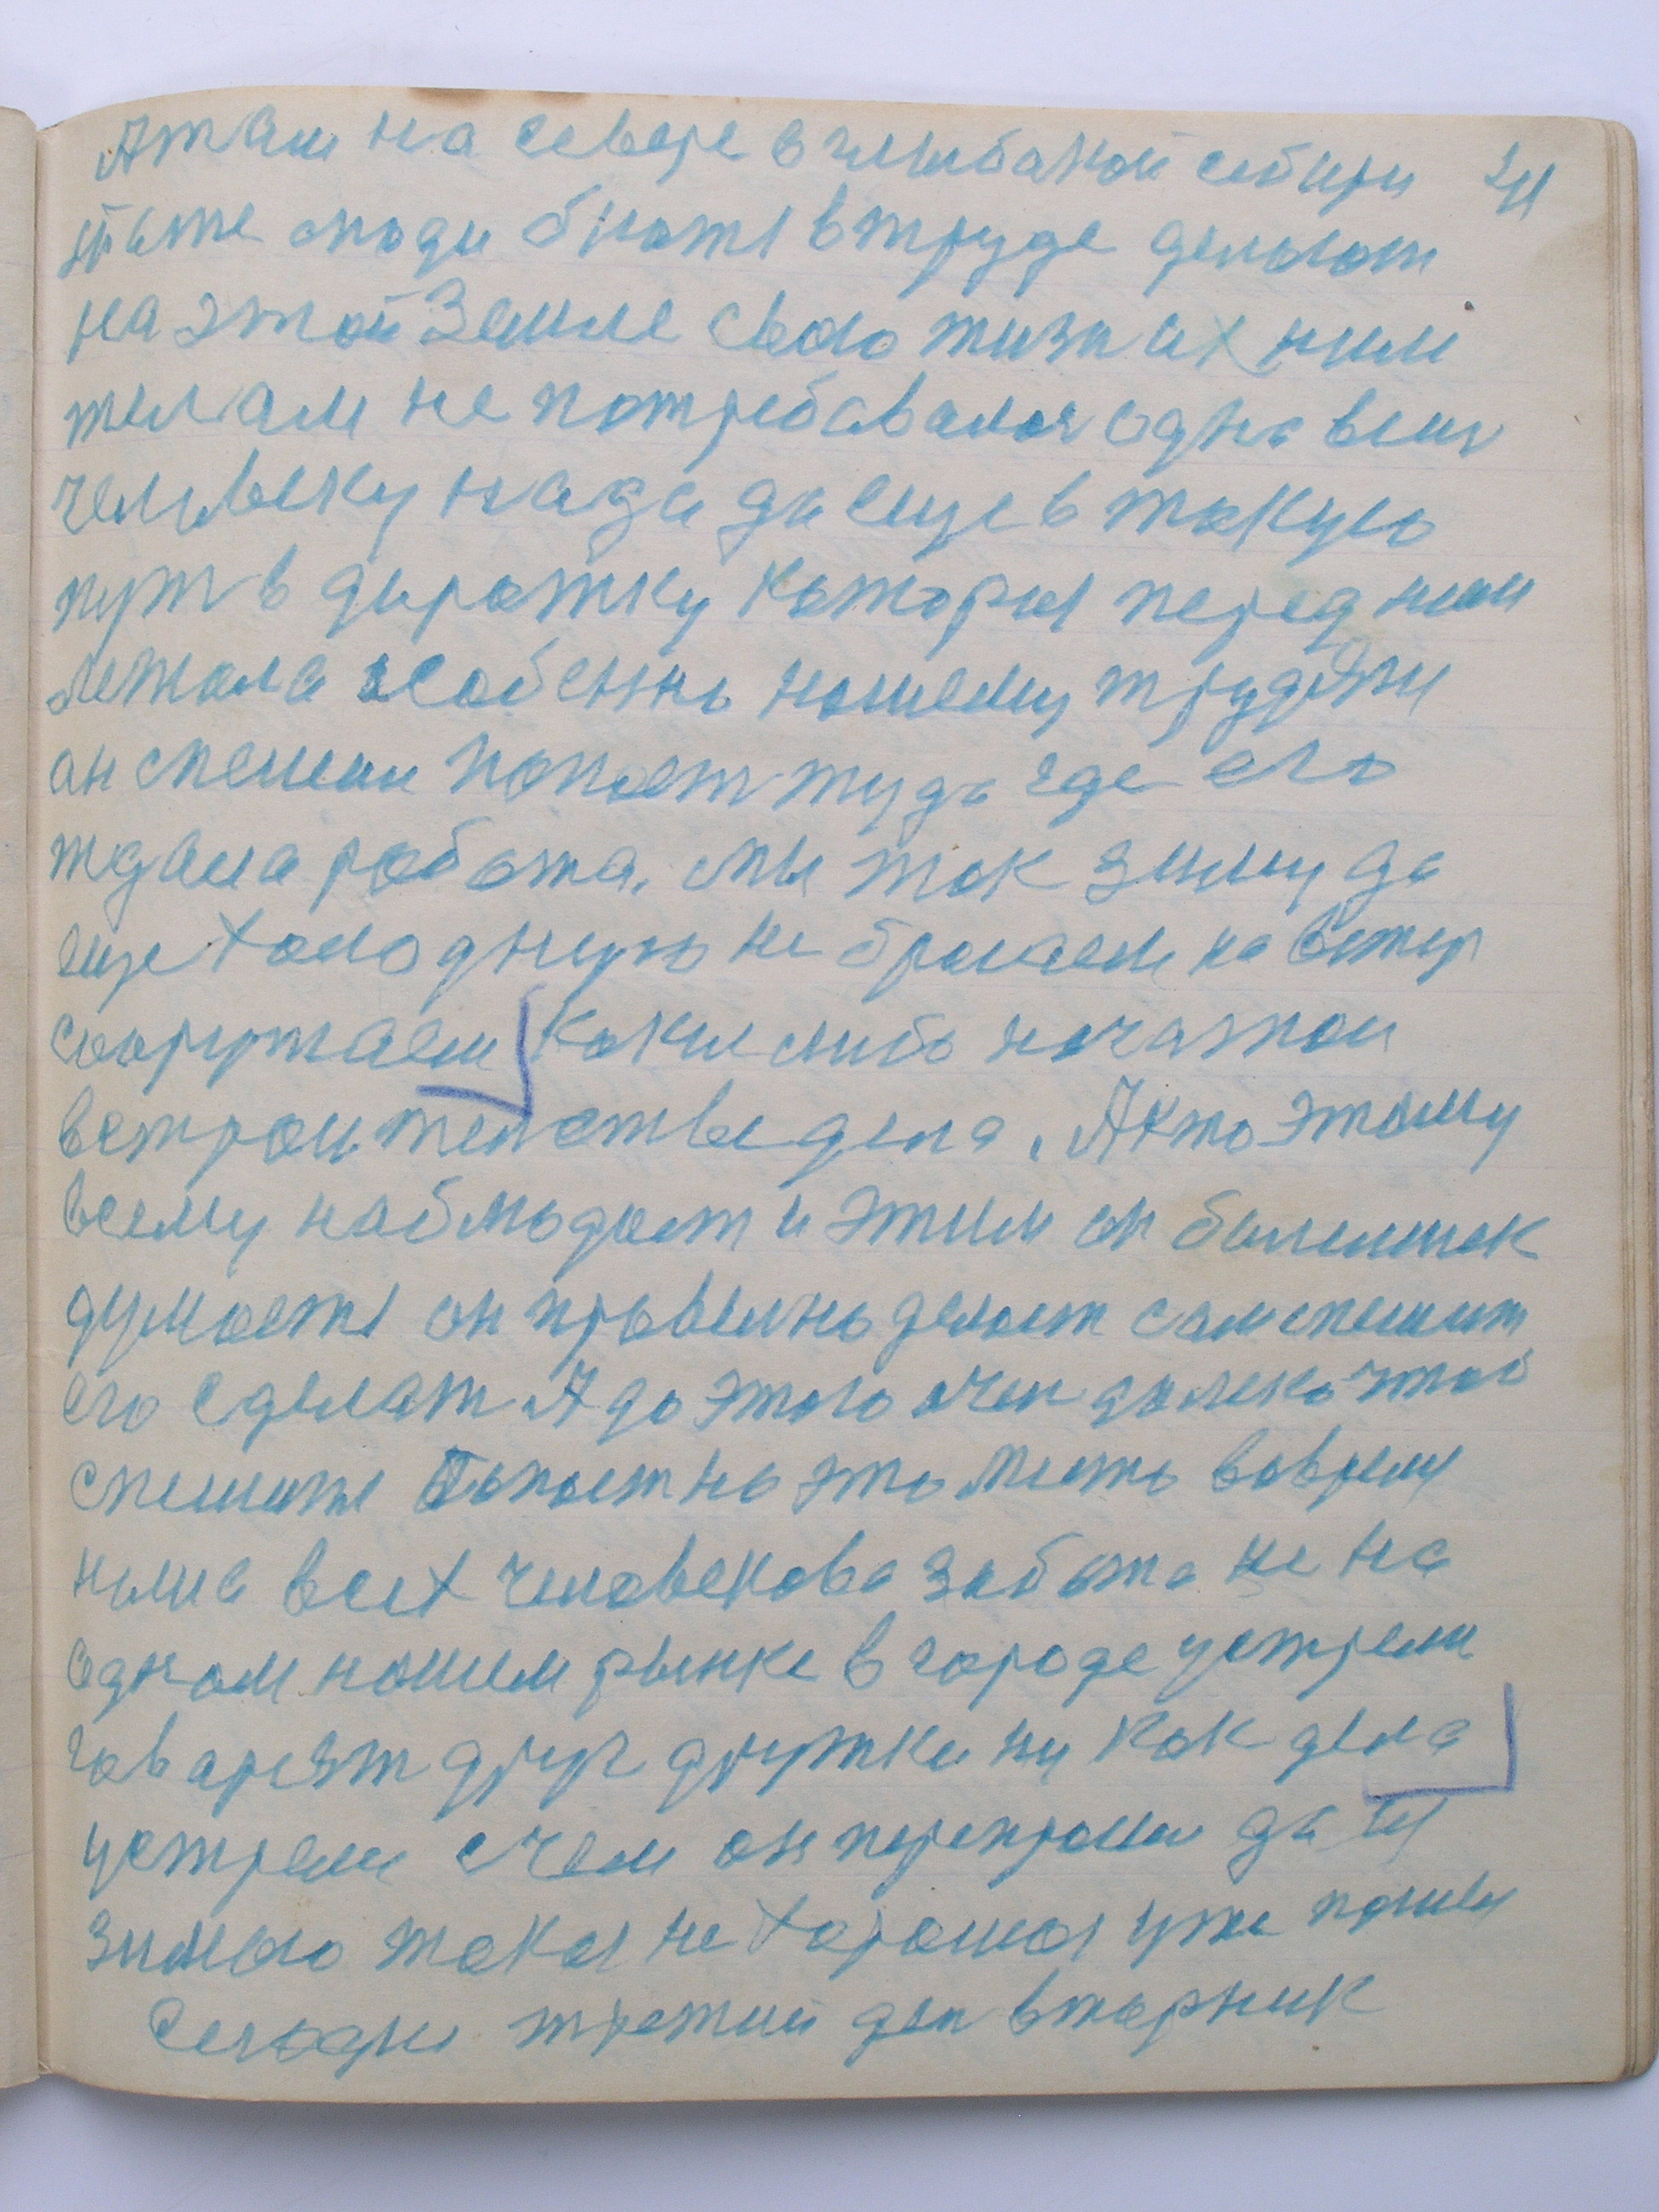 Атам на севере в глыбакой сибири
тоже люди бютя в труде делают
на этой Земле свою жизн а х ним
телам не потребавалоя одна вещ
человеку нада да еще в такую
пут в дирожку каторыя перед ним
лежала асобенно нашему трудяги
он спешил попаст туда где его
ждала работа, мы так зиму да
еще холодную не бросаем на ветер
сооружаем какие либо начатаи
в строителстве дела, А кто этому
всему наблюдает и этим он балельшик
думаетя он правелно делает сам спешит
его сделат А до этого очен далеко чтоб
спешитя Попаст на это место вовремя
нима всех человекова забота не на
одном нашем рынке в городе устрели
гаварят друг дружке ну как дела
устрели с чем он перепрошы да ты
зимою такая не харошая уже пошла
Сегодня третий ден вторник